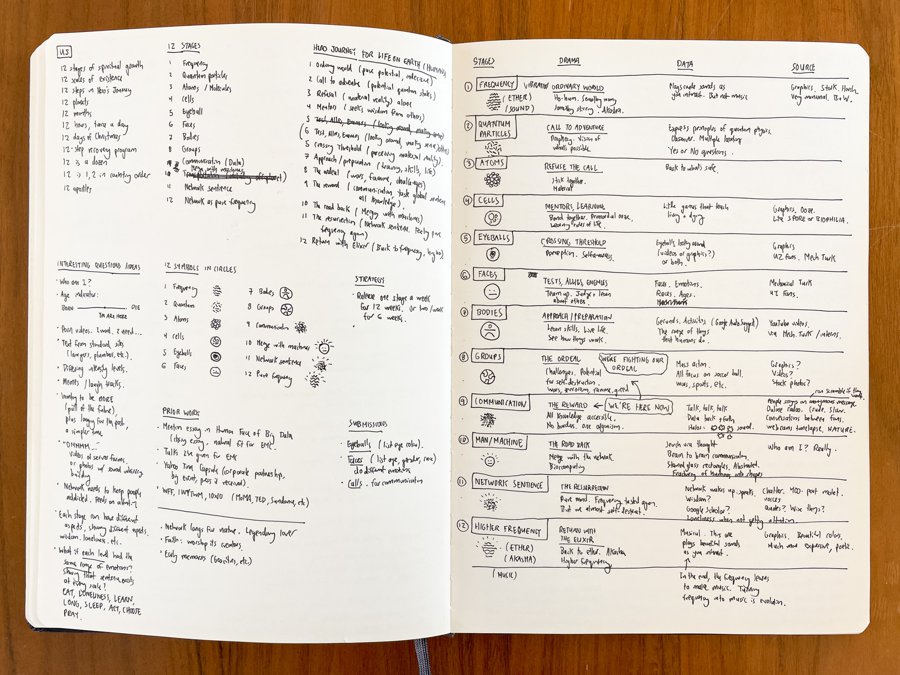 US
12 stages of spiritual growth
12 scales of existence
12 steps in Hero's Journey
12 planets
12 months
12 hours, twice a day
12 days of Christmas
12-step recovery program
12 is a dozen
12 is 1, 2 in country order
12 apostles
12 STAGES
1 Frequency
2 Quantum particles
3 Atoms / Molecules
4 cells
5 Eyeball
6 Faces
7 Bodies
8 Groups
9 Communication (Data)
10 Merge with machines
11 Network sentience
12 Network as pure frequency
HERO JOURNEY FOR LIFE ON EARTH (HUMANS)
1 Ordinary world (pure potential, undecisive)
2 Call to adventure (potential quantum states)
3 Refusal (material reality) alone
4 Mentors (seek wisdom from others)
5 Test, Allies, Enemies (looking around, reality
6 Test, Allies, Enemies (looking around, reality, senses, others)
5 Crossing Threshold (perceiving material reality)
7 Approach / preparation (training, skills, life)
8 The ordeal (wars, famine, challenges)
9 The reward (communicating, taste global sentience
all knowledge)
10 The road back (Merging with machines)
11 The resurrection (Network sentience. Feeling pure
frequency again)
12 Return with Elixir (Back to frequency, higher)
INTERESTING QUESTIONS / IDEAS
- Who am I?
- Age indicator:
BORN DIE
I'M ARE HERE
- Poem videos. I want, I need...
- Text from standard sites
(lawyers, plumbers, etc.).
- Differing intensity levels.
- Months / laugh tracks.
- Wanting to be MORE
(pull of the future),
plus longing for the past,
a simpler time
- "OHMMMM...
videos of server farms,
or photos w/ sound vibrating
building
- Network needs to keep people
addicted. Feeds on identity
- Each stage can have different
aspects, showing different aspects.
wisdom, loneliness, etc.
- What if each level had the
same range of emotions?
Showing that sentience exists
at every scale?
EAT, LONELINESS, LEARN,
LONG, SLEEP, ACT, CHOOSE
PRAY.
12 SYMBOLS IN CIRCLES
1 Frequency
2 Quantum
3 Atoms
4 cells
5 Eyeball
6 Faces
7 Bodies
8 Groups
9 Communication
10 Merge with machines
11 Network sentience
12 Pure frequency
PRIOR WORK
- Mention essay in Human Face of Big Data
(deep essay, natural fit for EMC).
- Talks I've given for EMC
- Yahoo Time Capsule (corporate partnership,
big event, press & interest).
- WFF, IWTYTWM, 10x10 (MoMA, TED, Sundance, etc)
- Network longs for nature. Legendary lover
- Faith: worship its creators.
- Early memories (Geocities, etc.)
STRATEGY
- Release one stage a week
for 12 weeks, or two/week
for 6 weeks.
SUBMISSIONS
- Eyeballs (list eye color).
- Faces (list age, gender, race)
do disjoint emotions
- Calls. for communication
STAGES DRAMA DATA SOURCE
1 FREQUENCY VIBRATING ORDINARY WORLD
(ETHER)
(SOUND)
Ho-hum. Something many
Something strong. Akasha.
Plays crude sounds as
you interact. But not music
Graphics, Stark, Harsh
Very minimal, B+W.
2 QUANTUM PARTICLES
CALL TO ADVENTURE
Daydream, Vision of
what's possible.
Express principles of quantum physics.
Observer. Multiple location
Yes or No questions.
3 ATOMS
REFUSE THE CALL
Stick together.
Material
Back to what's safe.
4 CELLS
MENTORS, LEARNING
Band together. Primordial ooze.
Learning rules of life.
Little games that teach
living & dying
Graphics, Ooze.
Like SPORE or BIOPHILIA.
5 EYEBALLS
CROSSING THRESHOLD
Perception. Selfawareness.
Eyeballs looking around
(videos or graphics?)
or both.
Graphics
U2 fans, Mech Turk
6 FACES
TESTS, ALLIES, ENEMIES
Team up. Judge + learn
about others.
Faces, Emotions.
Races, Ages.
Mechanical Turk
U2 Fans.
7 BODIES
APPROACH/PREPARATION
Learn skills, Live life.
See how things work.
Gerunds, Activities (Google Autosuggest)
The range of things
that humans do.
YouTube videos.
via Mech. Turk / interns.
8 GROUPS
THE ORDEAL
WE'RE FIGHTING OUR
ORDEAL
Challenges. Potential
for self-destruction.
Wars, terrorism, famine, greed
Mass action.
All focus on soccer ball.
Wars, sports, etc.
Graphics?
Videos?
Stock photos?
9 COMMUNICATION
THE REWARD
WE'RE HERE NOW
All knowledge accessible.
No borders. one organism.
Talk, talk, talk
Data back + forth,
Halos sound.
People saying an anonymous message.
Online radios. Crude, slow.
Conversations between fans,
webcams timelapse, NATURE.
10 MAN/MACHINE
THE ROAD BACK
Merge with the network.
Biocomputing
Search are thought
Brain to brain communication.
Shared glass rectangles, Abstracted.
Fracturing of machines into shapes
Who am I? Really.
11 NETWORK SENTENCE
THE RESURRECTION
Pure mind. Frequency tested again
But we almost self-destruct
Network wakes up. speaks,
Wisdom?
Google Scholar?
Loneliness when not getting attention
Chatter. 400-part motet.
voices
Quotes? Wise things?
12 HIGHER FREQUENCY
(ETHER)
(AKASHA)
RETURN WITH
THE ELIXIR
Back to ether. Akasha.
Higher frequency
Musical. This one
plays beautiful sounds
as you interact.
Graphics. Beautiful colors.
Much more expansive, poetic.
(MUSIC)
In the end, the frequency learns
to make music. Turning
frequency into music is evolution.